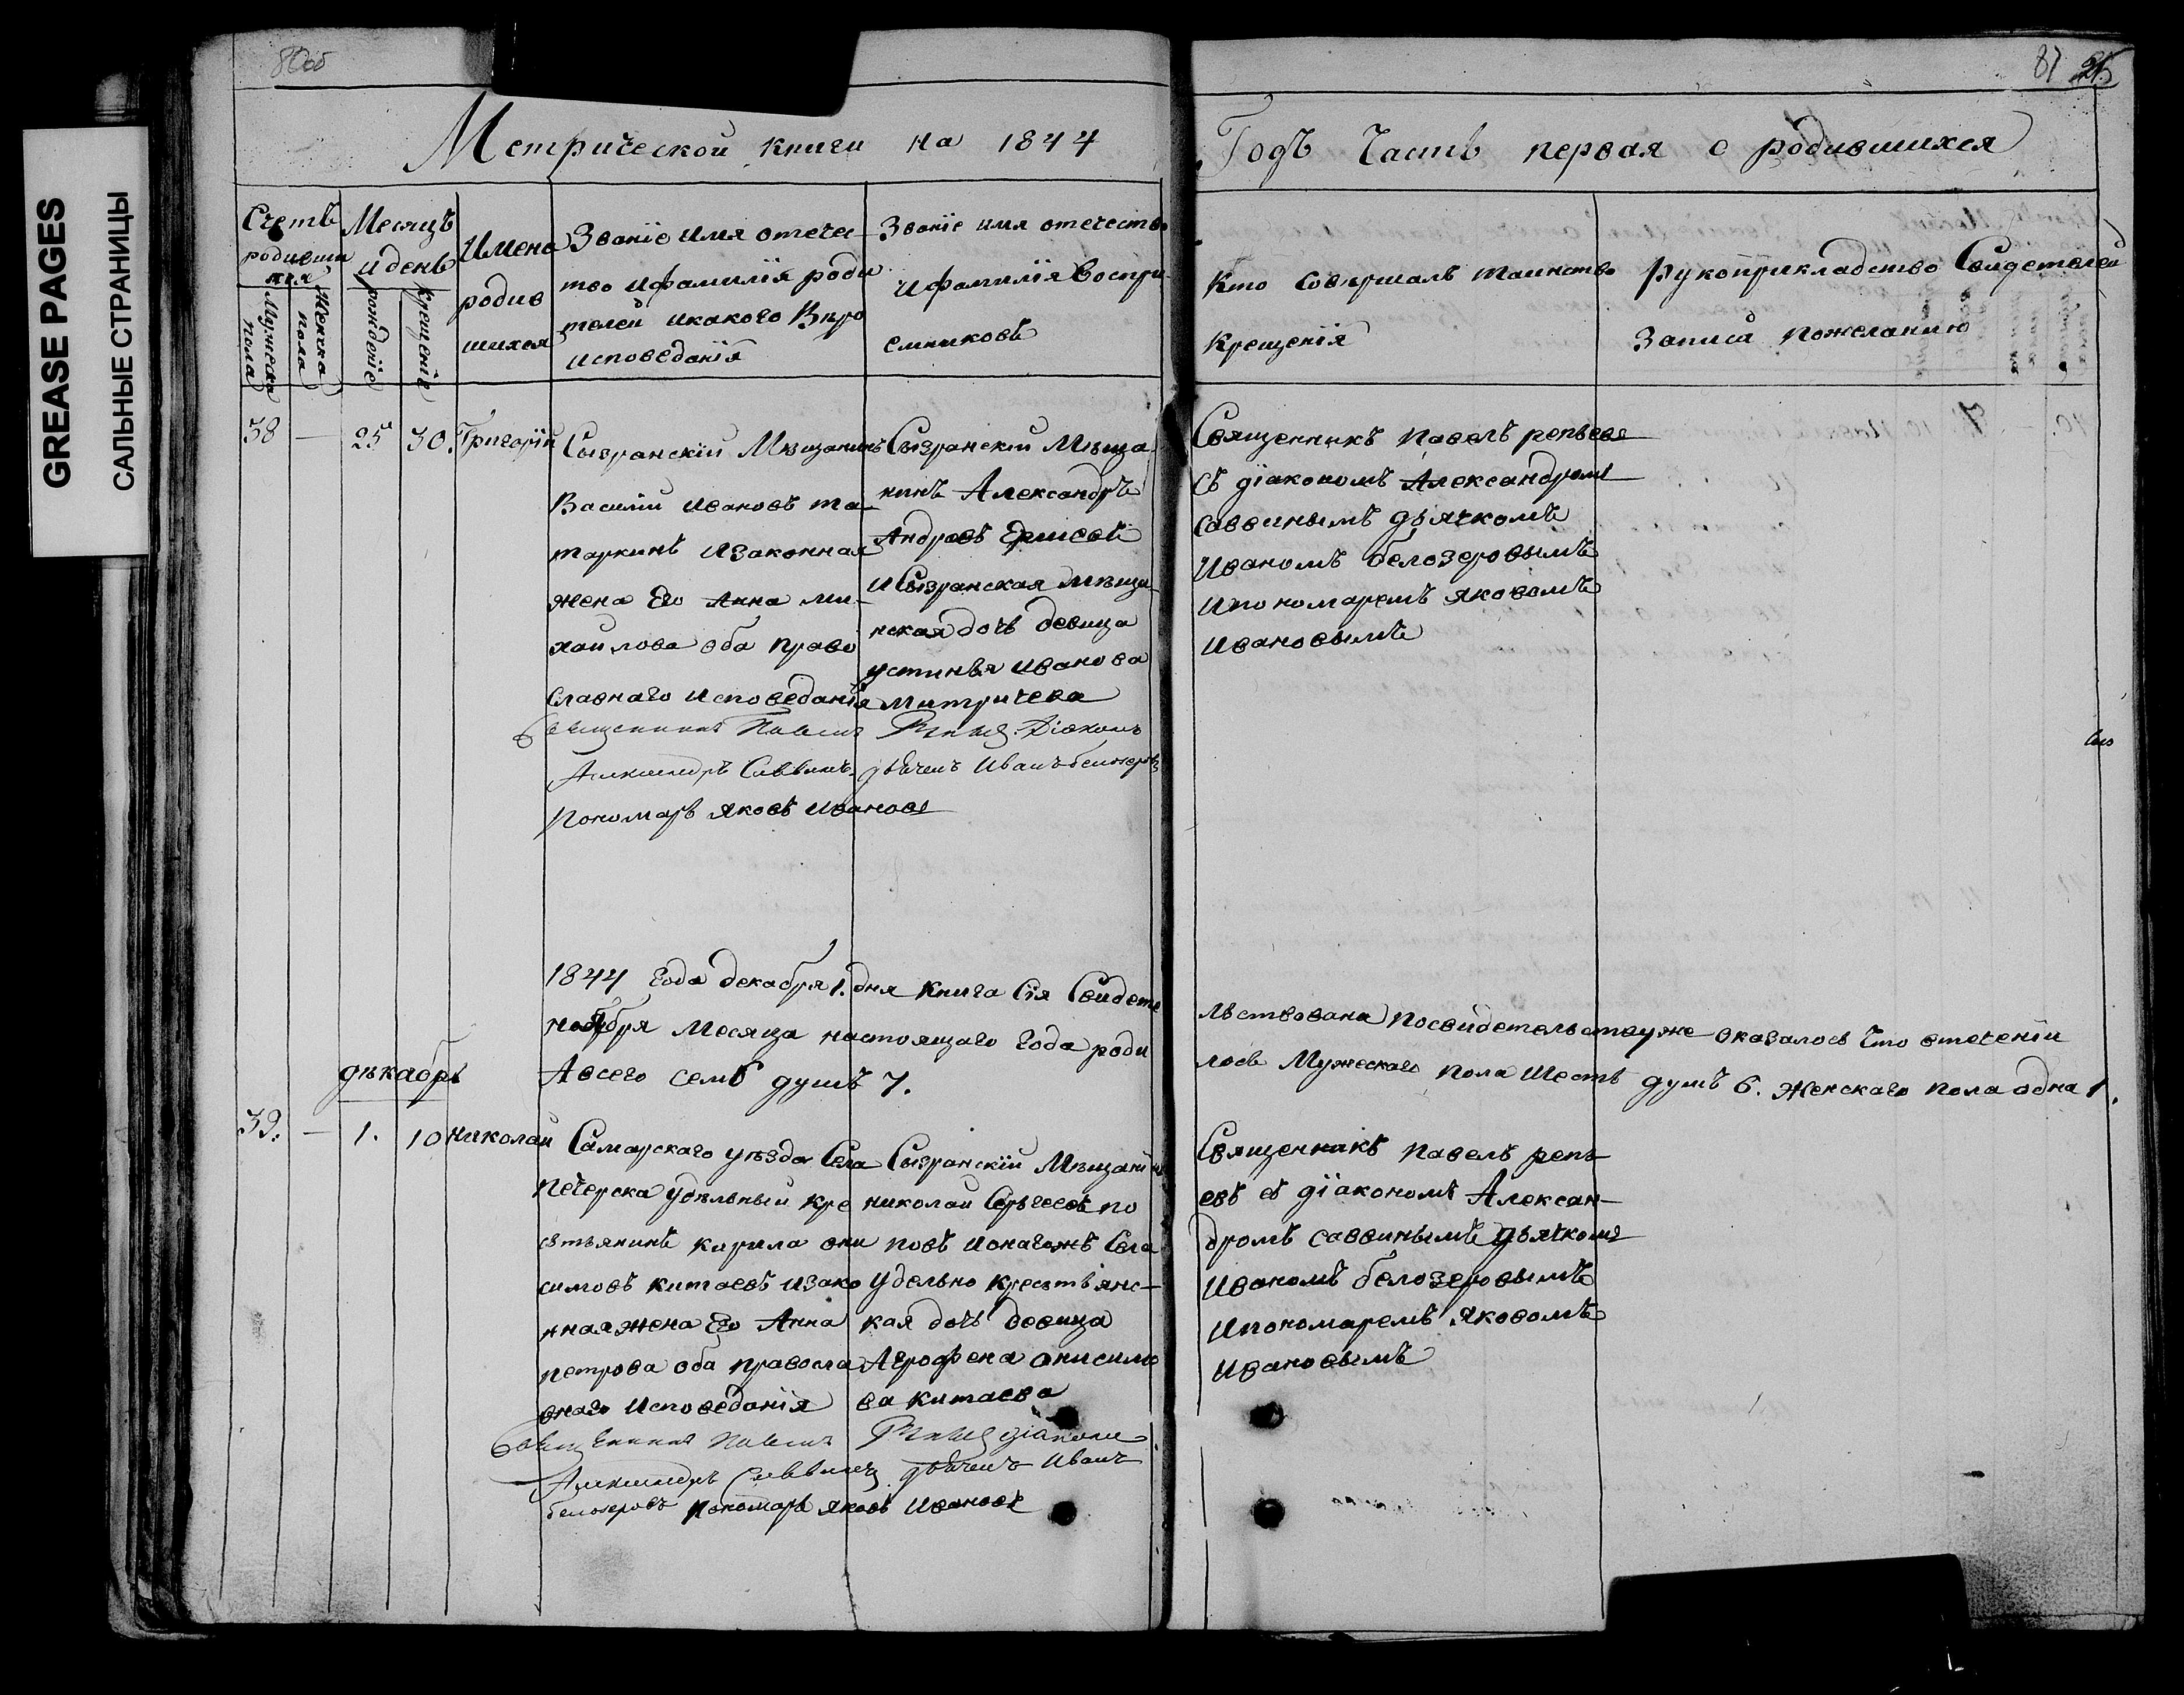 GREASE PAGES
САЛЬНЫЕ СТРАНИЦЫ
80об
81
Метрической книги на 1844
Годъ Часть первая о родившихся
Счетъ родивши хся
Мужеска пола
Женска пола
Месяцъ и день
рожденіе
крещеніе
Имена родив шихся
Званіе имя отечес
тво ифамилія роди
телей икакого Вѣро
исповеданія
Званіе имя отечество
ифамилія Воспри
емниковъ
Кто Совершалъ таинство
Крещенія
Рукоприкладство Свидетелей
Записи пожеланию
38 — 25 30. Григорій
Сызранскій Мѣщанинъ
Василій Ивановъ та
таркинъ Изаконная
жена Его Анна Ми-
хайлова оба право
славнаго исповеданія
Сызранскій Мѣща
нинъ Александръ
Андровъ
и Сызранская мѣща
нская дочь девица
устинья иванова
митричева
Священникъ Павелъ репьевъ
Съ діакономъ Александромъ
Саввинымъ дьячкомъ
Иваномъ белозеровымъ
Ипономаремъ яковомъ
Ивановымъ
Священникъ Павелъ Діаконъ
Александръ Саввинъ дьячекъ Иванъ белозеровъ
Пономарь яковъ Ивановъ
1844 года декабря 1. дня книга Сія Свидете
льствована посвидетельствуже оказалось Что втеченіи
ноября месяца настоящаго года роди
лось Мужескаго пола Шесть душъ 6. Женскаго пола одна 1.
Авсего семь душъ 7.
дѣкабрь
39. — 1. 10 николай
Самарскаго уѣзда Села
печерска удѣльный кре
стьянинъ кирила они
симовъ китаевъ изако
нная жена Его Анна
петрова оба правосла
внаго исповеданія
Сызранскій Мѣщанин
николай Сергеевъ по
повъ ионагожъ Села
удельно крестьянс-
кая дочь девица
Агрофена онисимо
ва китаева
Священникъ павелъ репь
евъ съ діакономъ Алексан-
дромъ саввинымъ дьячкомъ
Иваномъ белозеровымъ
Ипономаремъ яковомъ
Ивановымъ
Священникъ Павелъ діаконъ
Александръ Саввинъ дьячекъ Иванъ
белозеровъ пономарь яковъ Ивановъ